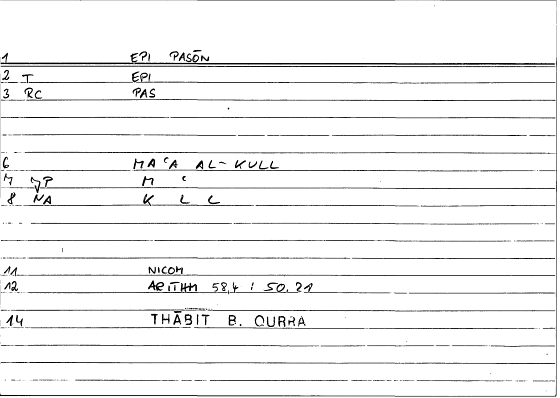 1 EPI PASŌN
2 T EPI
3 RC PAS
6 MAʿA AL-KULL
7 JP M ʿ
8 NA K L L
11 NICOM
12 ARITHM 58,4 : 50.21
14 THĀBIT B. QURRA